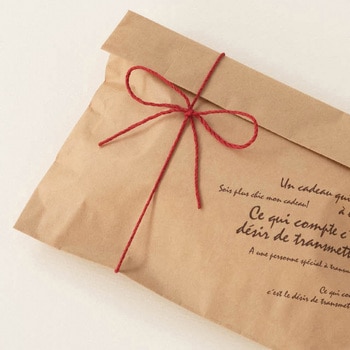 Un cadeau que
à
Sois plus chic mon cadeau!
Ce qui compte c'
désir de transmett
A une personne spécial à transm
Ce qui co
c'est le désir de transmet